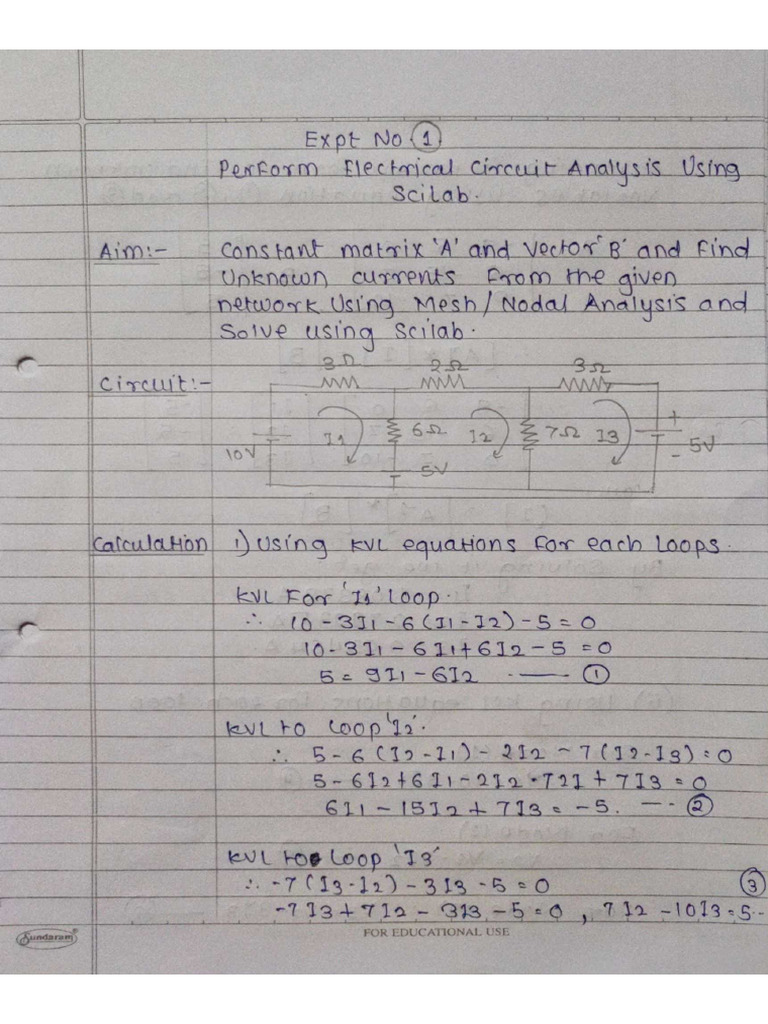 Expt No ①
Perform Electrical Circuit Analysis Using
Scilab.
Aim:- Constant matrix 'A' and Vector 'B' and Find
Unknown currents From the given
network Using Mesh/Nodal Analysis and
Solve using Scilab.
Circuit:-
3Ω 2Ω 3Ω
10V I1 6Ω I2 7Ω I3 + 5V -
5V
Calculation 1) Using KVL equations for each Loops.
KVL For 'I1' Loop.
∴ 10 - 3I1 - 6(I1 - I2) - 5 = 0
10 - 3I1 - 6I1 + 6I2 - 5 = 0
5 = 9I1 - 6I2 —— ①
KVL to Loop 'I2'.
∴ 5 - 6(I2 - I1) - 2I2 - 7(I2 - I3) = 0
5 - 6I2 + 6I1 - 2I2 - 72I + 7I3 = 0
6I1 - 15I2 + 7I3 = -5. —- ②
KVL to Loop 'I3'
∴ -7(I3 - I2) - 3I3 - 5 = 0 ③
-7I3 + 7I2 - 3I3 - 5 = 0, 7I2 - 10I3 = 5--
Sundaram
FOR EDUCATIONAL USE